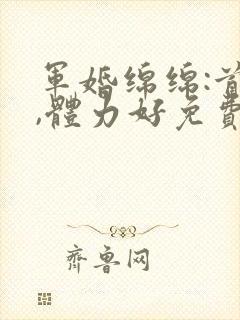 軍婚绵绵:首
,體力好免費
齊魯网